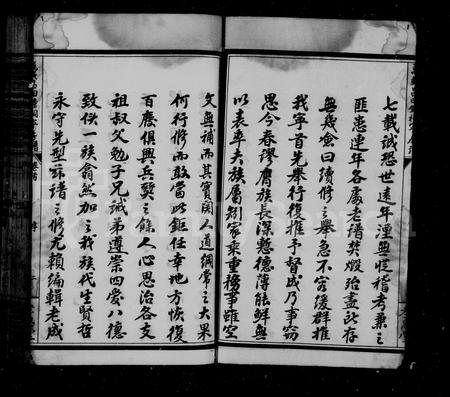 七載誠恐世遠年湮無從稽考兼之
匪患連年各處老譜焚燬殆盡所存
無幾僉曰續修之舉急不容緩群推
我寧首先舉行復推予督成乃事竊
思今春謬膺族長深慙德薄能鮮無
以表率夫族屬闔家乘重務事雖空
文無補而其實關人道綱常之大果
何行修而敢當此鉅任幸地方恢復
百廢俱興兵燹之餘人心思治各支
祖叔父勉子兄誡弟遵崇四家八德
致佚一族翕然加之我族代生賢哲
永守先型茲譜之修尤賴編輯老成